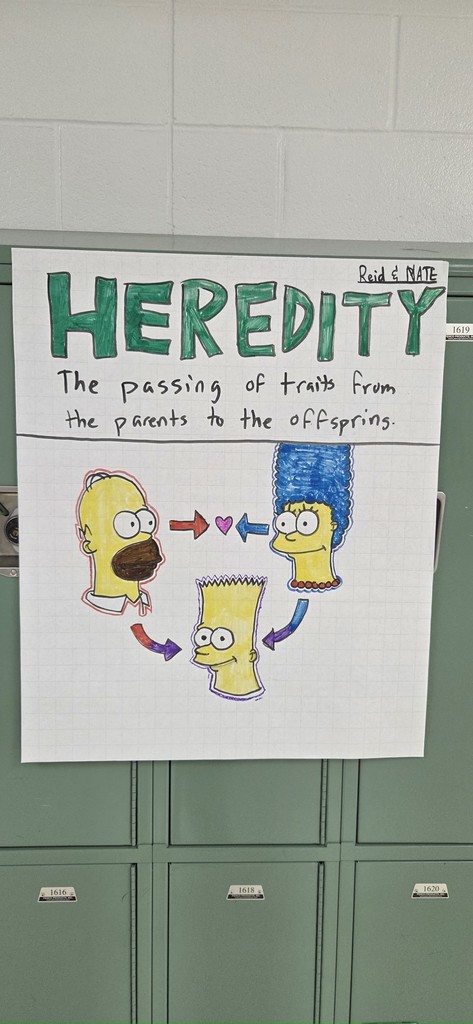 Reid & NATE
HEREDITY
The passing of traits from
the parents to the offspring.
1619
1616
1618
1620